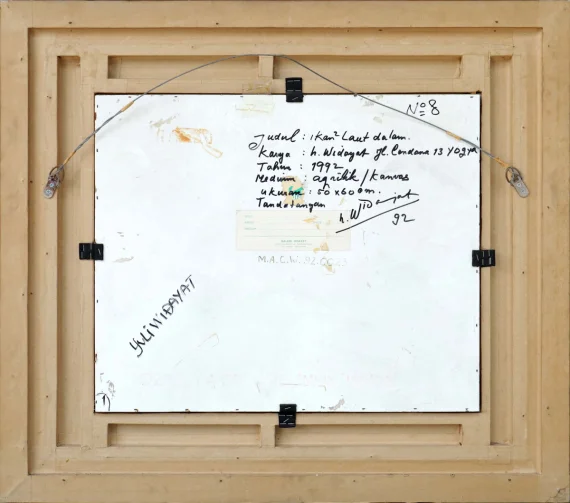 No 8
Judul : ikan² Laut dalam.
Karya : h. Widayat Jl. Cendana 13 Yogya
Tahun : 1992
Medium : agrilik / Kanvas
ukuran : 50 x 60 cm.
Tandatangan
h. Widayat
92
M.A.C.W.
YULI WIDAYAT